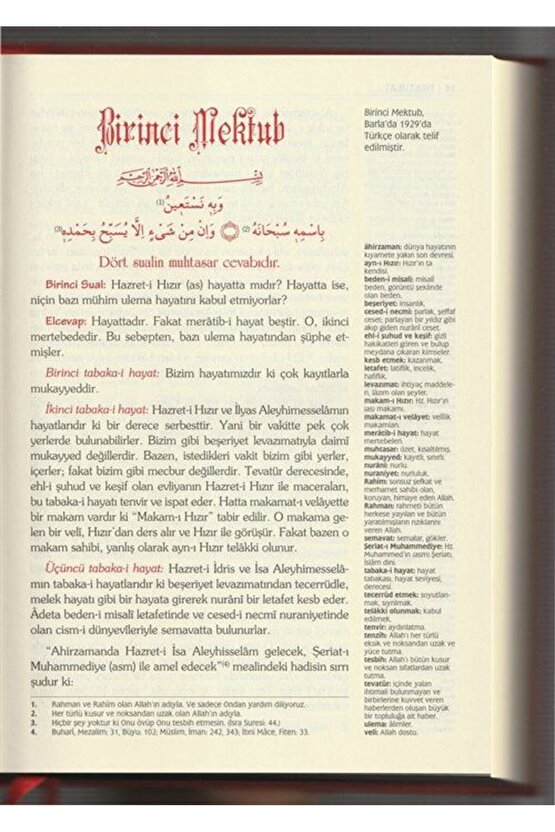 Birinci Mektub
بِسْمِ اللهِ الرَّحْمٰنِ الرَّحِيمِ
وَبِهِ نَسْتَعِينُ (1)
بِاسْمِهِ سُبْحَانَهُ (2) وَاِنْ مِنْ شَىْءٍ اِلَّا يُسَبِّحُ بِحَمْدِهِ (3)
Dört sualin muhtasar cevabıdır.
Birinci Sual: Hazret-i Hızır (as) hayatta mıdır? Hayatta ise,
niçin bazı mühim ulema hayatını kabul etmiyorlar?
Elcevap: Hayattadır. Fakat merâtib-i hayat beştir. O, ikinci
mertebededir. Bu sebepten, bazı ulema hayatından şüphe et-
mişler.
Birinci tabaka-i hayat: Bizim hayatımızdır ki çok kayıtlarla
mukayyeddir.
İkinci tabaka-i hayat: Hazret-i Hızır ve İlyas Aleyhimesselâmın
hayatlarıdır ki bir derece serbesttir. Yani bir vakitte pek çok
yerlerde bulunabilirler. Bizim gibi beşeriyet levazımatıyla daimî
mukayyed değillerdir. Bazen, istedikleri vakit bizim gibi yerler,
içerler; fakat bizim gibi mecbur değillerdir. Tevatür derecesinde,
ehl-i şuhud ve keşif olan evliyanın Hazret-i Hızır ile maceraları,
bu tabaka-i hayatı tenvir ve ispat eder. Hatta makamat-ı velâyette
bir makam vardır ki "Makam-ı Hızır" tabir edilir. O makama ge-
len bir veli, Hızır'dan ders alır ve Hızır ile görüşür. Fakat bazen o
makam sahibi, yanlış olarak ayn-ı Hızır telâkki olunur.
Üçüncü tabaka-i hayat: Hazret-i İdris ve İsa Aleyhimesselâ-
mın tabaka-i hayatlarıdır ki beşeriyet levazımatından tecerrüdle,
melek hayatı gibi bir hayata girerek nurânî bir letafet kesb eder.
Âdeta beden-i misalî letafetinde ve cesed-i necmî nuraniyetinde
olan cism-i dünyevîleriyle semavatta bulunurlar.
"Ahirzamanda Hazret-i İsa Aleyhisselâm gelecek, Şeriat-ı
Muhammediye (asm) ile amel edecek"(4) mealindeki hadisin sırrı
şudur ki:
1. Rahman ve Rahîm olan Allah'ın adıyla. Ve sadece Ondan yardım diliyoruz.
2. Her türlü kusur ve noksandan uzak olan Allah'ın adıyla.
3. Hiçbir şey yoktur ki Onu övüp Onu tesbih etmesin. (İsra Suresi: 44.)
4. Buharî, Mezalim: 31, Büyu: 102; Müslim, İman: 242, 343; İbni Mâce, Fiten: 33.
Birinci Mektub,
Barla'da 1929'da
Türkçe olarak telif
edilmiştir.
âhirzaman: dünya hayatının
kıyamete yakın son devresi.
ayn-ı Hızır: Hızır'ın ta
kendisi.
beden-i misali: misalî
beden, görüntü şeklinde
olan beden.
beşeriyet: insanlık.
cesed-i necmî: parlak, şeffaf
ceset; parlayan bir yıldız gibi
akıp giden nuranî ceset.
ehl-i şuhud ve keşif: gizli
hakikatleri gören ve bulup
meydana çıkaran kimseler.
kesb etmek: kazanmak.
letafet: latiflik, incelik,
hafiflik.
levazımat: ihtiyaç maddele-
ri, lâzım olan şeyler.
makam-ı Hızır: Hz. Hızır'ın
(as) makamı.
makamat-ı velâyet: velîlik
makamları.
merâtib-i hayat: hayat
mertebeleri.
muhtasar: özet, kısaltılmış.
mukayyed: kayıtlı, sınırlı.
nurâni: nurlu.
nuraniyet: nurluluk.
Rahîm: sonsuz şefkat ve
merhamet sahibi olan,
koruyan, himaye eden Allah.
Rahman: rahmeti bütün
herkese yayılan ve bütün
yaratılmışların rızıklarını
veren Allah.
semavat: semalar, gökler.
Şeriat-ı Muhammediye: Hz.
Muhammed'in (asm) Şeriatı,
İslâm dini.
tabaka-i hayat: hayat
tabakası, hayat seviyesi,
derecesi.
tecerrüd etmek: soyutlan-
mak, sıyrılmak.
telâkki olunmak: kabul
edilmek.
tenvir: aydınlatma.
tenzih: Allah'ı her türlü
eksik ve noksandan uzak ve
yüce tutma.
tesbih: Allah'ı bütün kusur
ve noksan sıfatlardan uzak
tutma.
tevatür: içinde yalan
ihtimali bulunmayan ve
birbirlerine kuvvet veren
haberlerden oluşan büyük
bir topluluğa ait haber.
ulema: âlimler.
veli: Allah dostu.